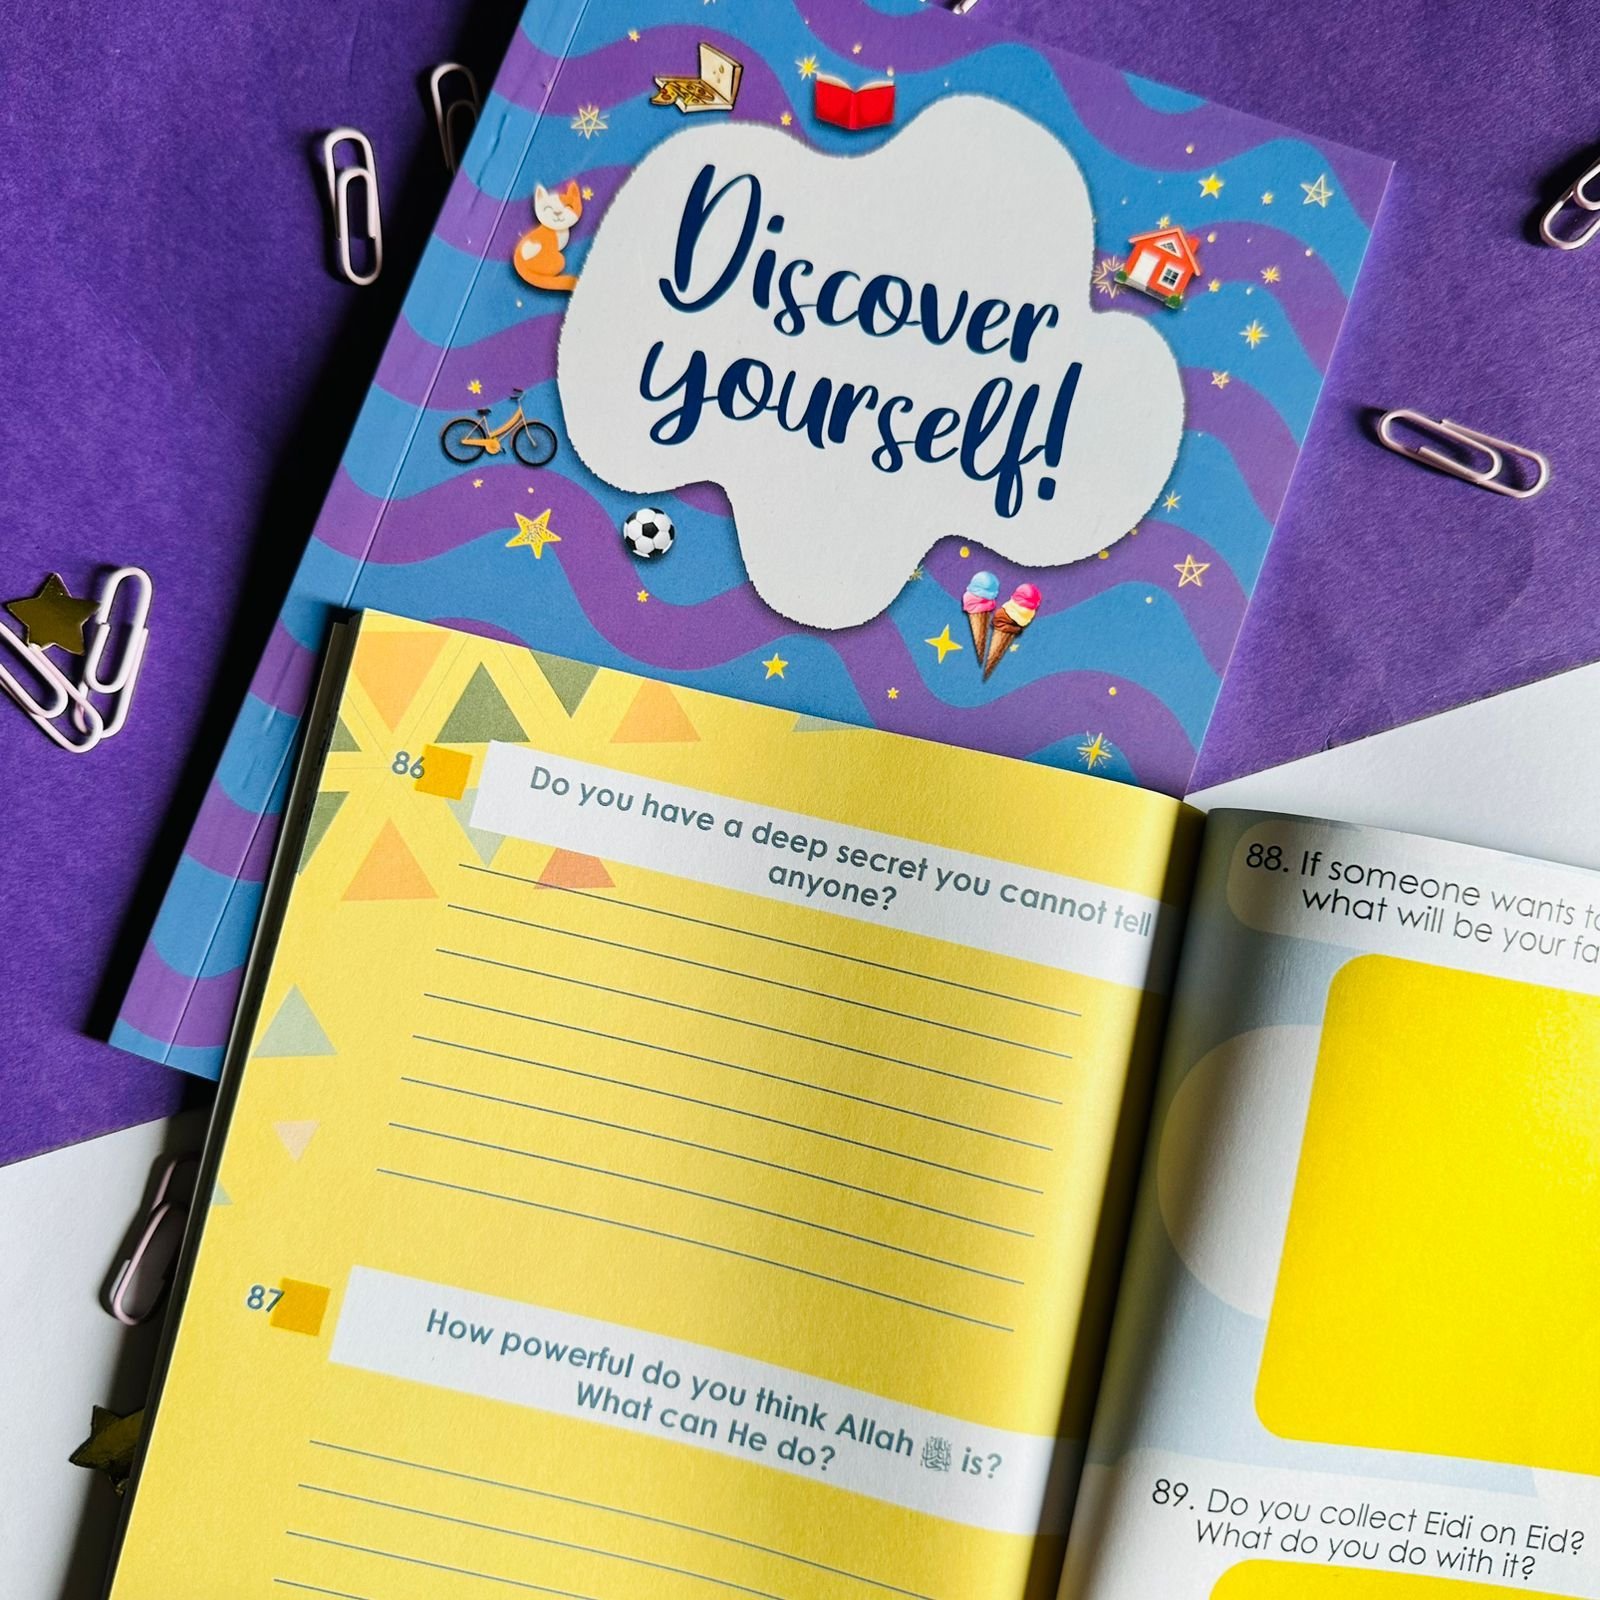 Discover
yourself!
86
Do you have a deep secret you cannot tell
anyone?
87
How powerful do you think Allah ﷻ is?
What can He do?
88. If someone wants
what will be your
89. Do you collect Eidi on Eid?
What do you do with it?